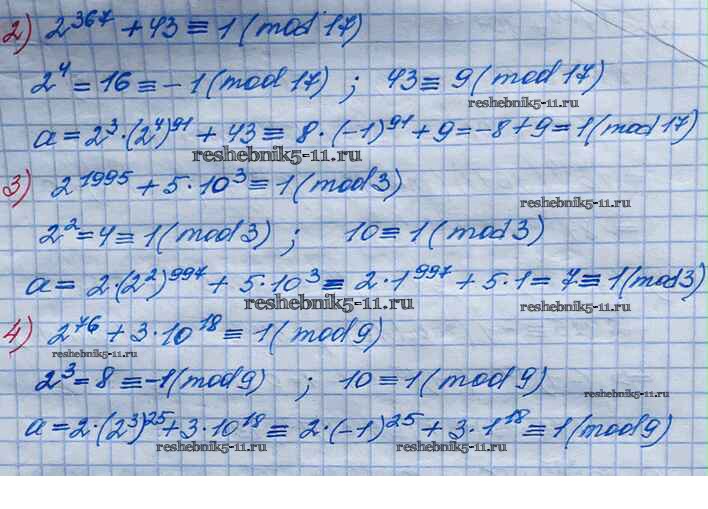 2) 2^367 + 43 ≡ 1 (mod 17)
2^4 = 16 ≡ -1 (mod 17) ; 43 ≡ 9 (mod 17)
reshebnik5-11.ru
a = 2^3 · (2^4)^91 + 43 ≡ 8 · (-1)^91 + 9 = -8 + 9 = 1 (mod 17)
reshebnik5-11.ru
3) 2^1995 + 5 · 10^3 ≡ 1 (mod 3)
reshebnik5-11.ru
2^2 = 4 ≡ 1 (mod 3) ; 10 ≡ 1 (mod 3)
a = 2 · (2^2)^997 + 5 · 10^3 ≡ 2 · 1^997 + 5 · 1 = 7 ≡ 1 (mod 3)
reshebnik5-11.ru
4) 2^76 + 3 · 10^18 ≡ 1 (mod 9)
reshebnik5-11.ru
2^3 = 8 ≡ -1 (mod 9) ; 10 ≡ 1 (mod 9)
reshebnik5-11.ru
a = 2 · (2^3)^25 + 3 · 10^18 ≡ 2 · (-1)^25 + 3 · 1^18 ≡ 1 (mod 9)
reshebnik5-11.ru
reshebnik5-11.ru